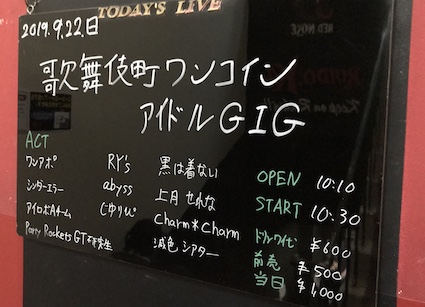 TODAY'S LIVE
2019.9.22.日
歌舞伎町ワンコイン
アイドルGIG
ACT
ワンアポ RY's 黒は着ない
シンダーエラー abyss 上月せれな
アイロボAチーム じゆりぴ Charm*Charm
Party Rockets GT 研究生 減色シアター
OPEN 10:10
START 10:30
¥600
前売 ¥500
当日 ¥1,000
RED NOSE